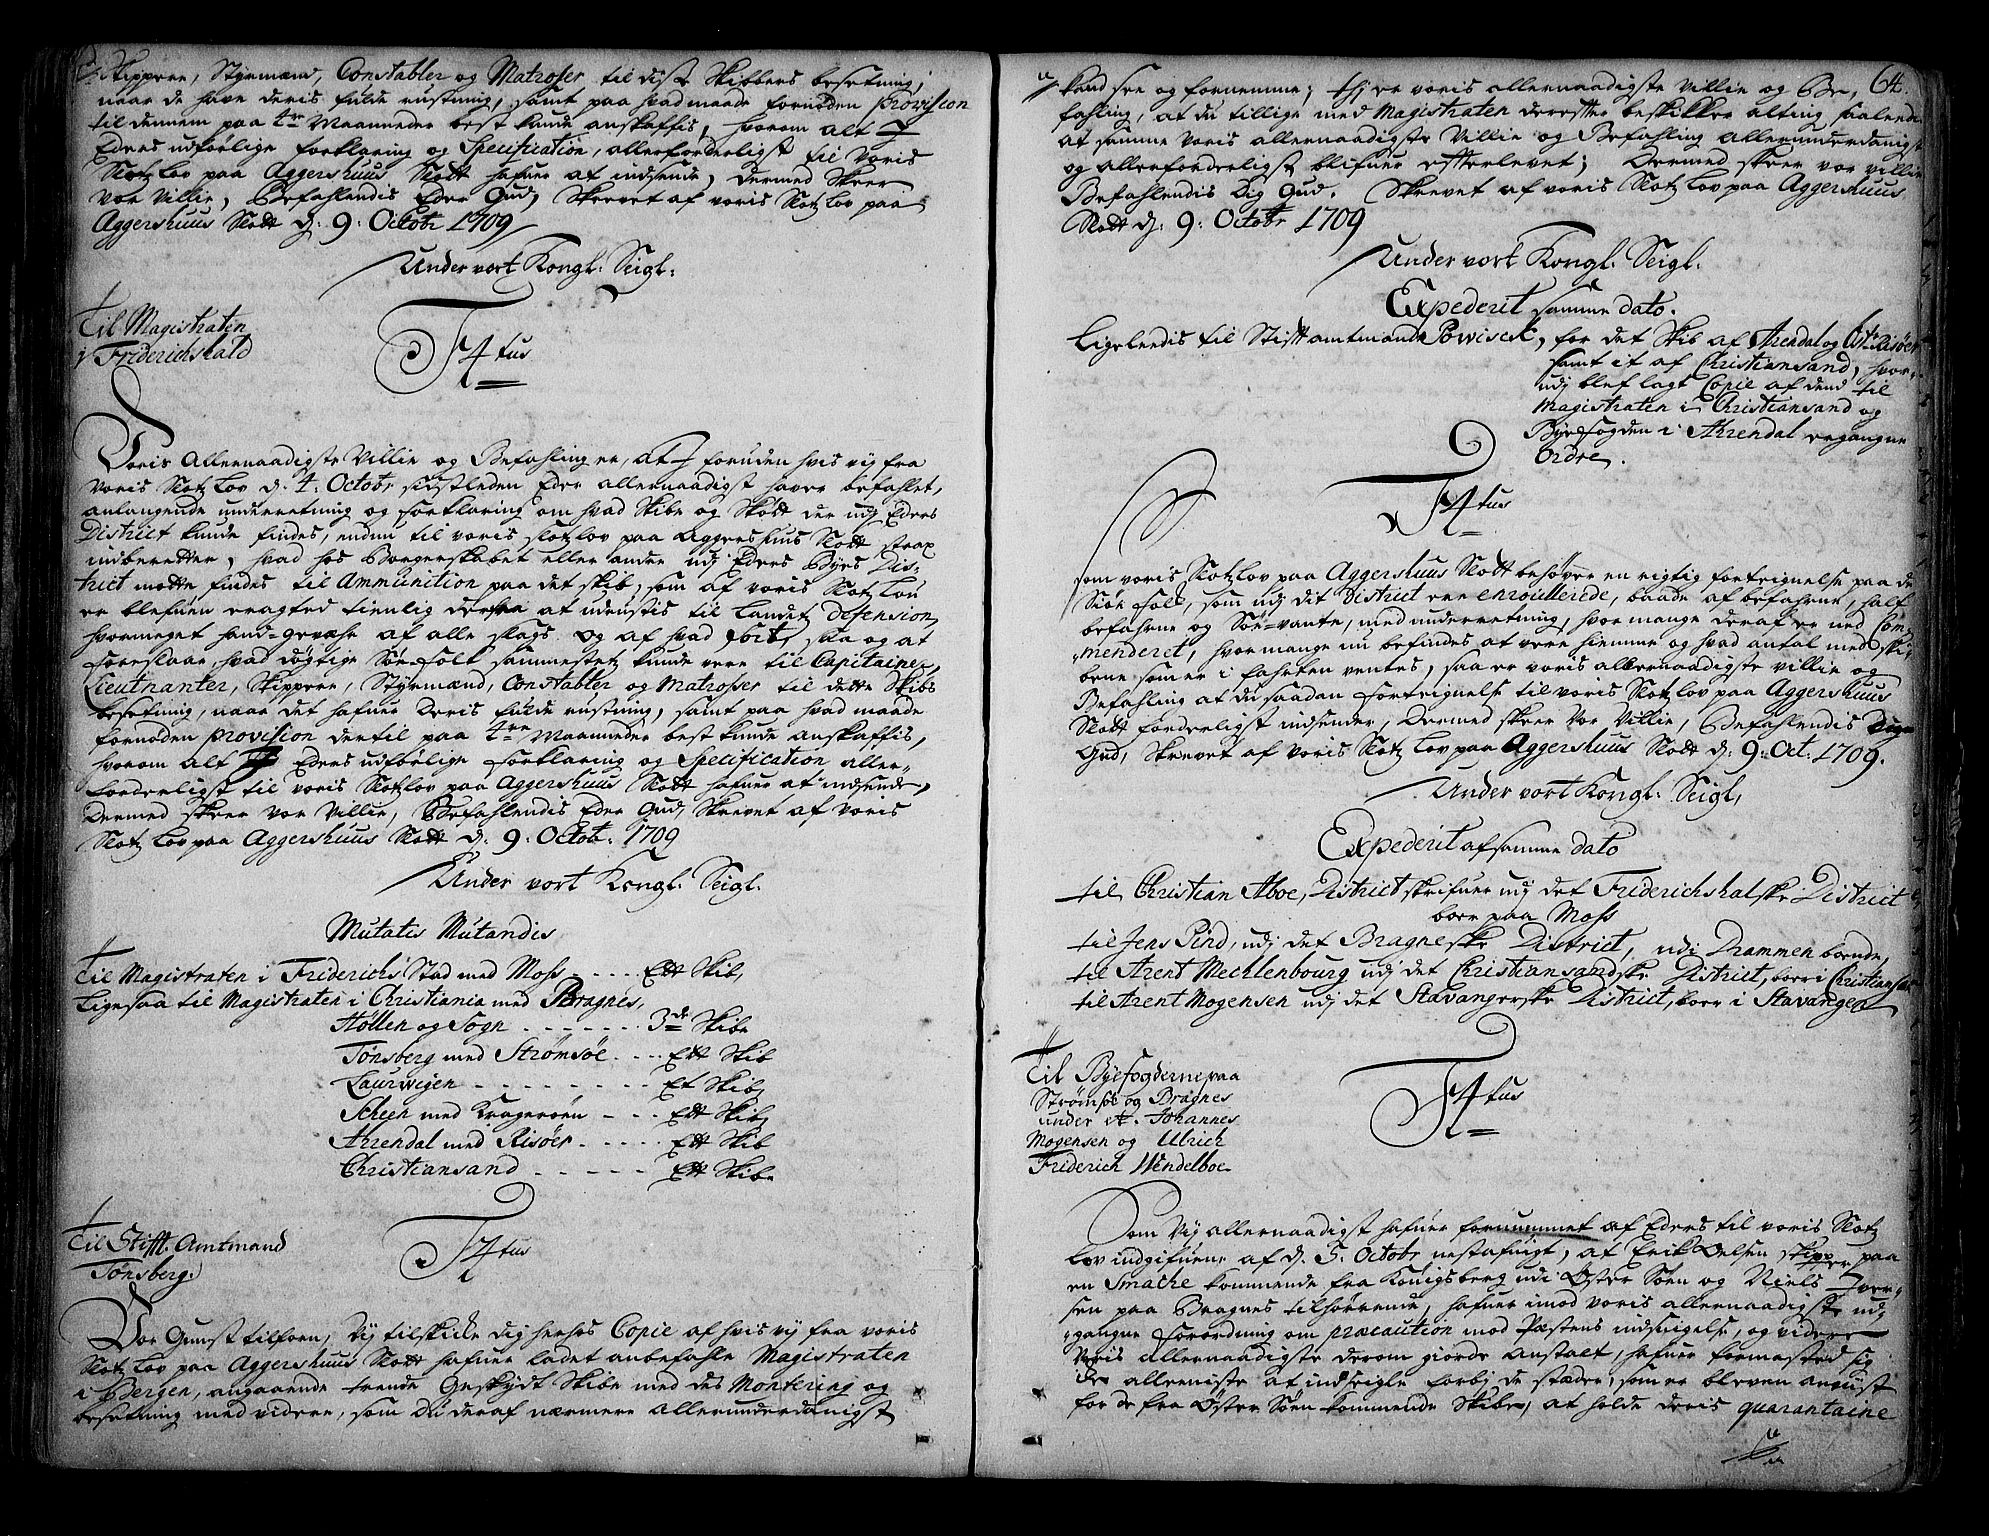 Skippere, Styrmænd, Constabler og Matroser til disse Skibbers besetning,
naar de have deris fulde rustning, samt paa hvad maade fornøden provision
til dennem paa 4re Maaneder best kunde anskaffis, hvorom alt I
Eders udførlige forklaring og Specification, allerforderligst til Voris
Slotz Lov paa Aggershuus Slott hafuer at indsende, dermed Skeer
vor Villie, Befahlendis Eder Gud, Skrevet af voris Slotz Lov paa
Aggershuus Slott d: 9: Octobr 1709
Under vort Kongl: Seigl:
Til Magistraten
j Friderichshald
F4tus
Voris Allernaadigste Villie og Befahling er, at I foruden hvis vij fra
voris Slotz Lov d. 4: Octobr sidstleden Eder allernaadigst haver befahlet,
anlangende underretning og forklaring om hvad Skibe og Skøtt der udj Eders
District kunde findes, enden til voris Slotzlov paa Aggershuus Slott strax
indberetter, hvad hos Borgerskabet eller andre udj Eders Byes Dis-
trict motte findes til Ammunition paa det skib, som af voris Slotz Lov
er blefuen eragted tienlig der fra at udrustis til Landetz Defension
hvormeget hand-gevæhr af alle slags og af hvad sort, saa og at
foreslaae, hvad døgtige Søe-folk sammestetz kunde vere til Capitainer,
Lieutnanter, Skippere, Styrmænd, Constabler og Matroser til dette Skibs
besetning, naar det hafuer deris fulde rustning, samt paa hvad maade
fornøden provision dertil paa 4re Maaneder best kunde anskaffis,
hvorom alt I Eders udførlige forklaring og Specification aller-
forderligst til voris Slotzlov paa Aggershuus Slott hafuer at indsende,
Dermed skeer vor Villie, Befahlendis Eder Gud, Skrevet af voris
Slotz Lov paa Aggershuus Slott d: 9: Octob: 1709
Under vort Kongl: Seigl:
Mutatis Mutandis
Til Magistraten i Friderichs Stad med Moss - - - - Ett Skib,
Ligesaa til Magistraten i Christiania med Bragnes,
Høllen og Sogn - - - - - - - 3de Skibe
Tønsberg med Strømsøe - - - - Ett Skib
Laurwigen - - - - - - - - - Et Skib
Scheen med Kragerøen - - - - Ett Skib
Ahrendal med Risøer - - - - - Ett Skib
Christiansand - - - - - - Ett Skib
Til Stifft Amtmand
Tønsberg
F4tus
Vor Gunst tilforn, Vij tilskicke dig herhos Copie af hvis vij fra voris
Slotz Lov paa Aggershuus Slott hafuer ladet anbefahle Magistraten
i Bergen, angaaende trende Geskydt Skibe med des Montering og
besetning med videre, som Du deraf nærmere allerunderdanigst
64.
kand see og fornemme; thj er voris allernaadigste Villie og Be-
fahling, at du tillige med Magistraten derefter beskikker alting saaledes
at samme voris allernaadigste Villie og Befahling allerunderdanigst
og allerforderligst blifuer efterlevet; Dermed skeer vor villie
Befahlendis Dig Gud. Skrevet af voris Slotz Lov paa Aggershuus
Slott d: 9: Octobr 1709
Under vort Kongl: Seigl.
Expederit samme dato.
Ligeledis til Stiftamtmand Powisck, for det Skib af Arendal og Øste Risøer
samt it af Christiansand, hvor-
udj blef lagt Copie af dend til
Magistraten i Christiansand og
Byefogden i Ahrendal ergangne
Ordre.
F4tus
Som voris Slotz Lov paa Aggershuus Slott behøver en rigtig fortegnelse paa de
Siøe Folk, som udj dit District ere enroullerede, baade af befahrne, half
befahrne og Søe-vante, med underretning, hvor mange deraf er ned Com-
menderet, hvor mange nu befindes at vere hiemme og hvad antal med Ski-
bene som er i fahrten ventes, saa er voris allernaadigste villie og
Befahling at du saadan fortegnelse til voris Slotz Lov paa Aggershuus
Slott forderligst indsender, Dermed skeer vor Villie, Befahlendis Dig
Gud, Skrevet af voris Slotz Lov paa Aggershuus Slott d: 9: Oct: 1709.
Under vort Kongl: Seigl,
Expederit af samme dato
til Christian Aboe, District skrifuer udj det Friderichshalske District
boer paa Moss
til Jens Pind, udj det Bragneske District, udi Drammen boende,
til Arent Mecklenbourg udj det Christiansandske District, boer i Christiansand
til Arent Mogensen udj det Stavangerske District, boer i Stavangen
Til Byefogderne paa
Strømsøe og Bragnes
under et. Johannes
Mogensen og Ulrich
Friderich Wendelboe
F4tus
Som Vij allernaadigst hafuer fornummet af Eders til voris Slotz
Lov indgifuene af d. 5. Octobr nestafuigt, at Erik Oelsen skipper paa
en Smache kommende fra Königsberg udi Øster Søen og Niels Iver-
sen paa Bragnes tilhørrende, hafuer imod voris allernaadigst ud-
gangne forordning om præcaution mod Pæstens indsnigelse, og videre
voris allernaadigste derom giorde Anstalt, hafuer formasted sig
de allerniste at indseigle forbj de stæder, som er bleven anvist
for de fra Øster Søen kommende Skibe, at holde deris quarantaine